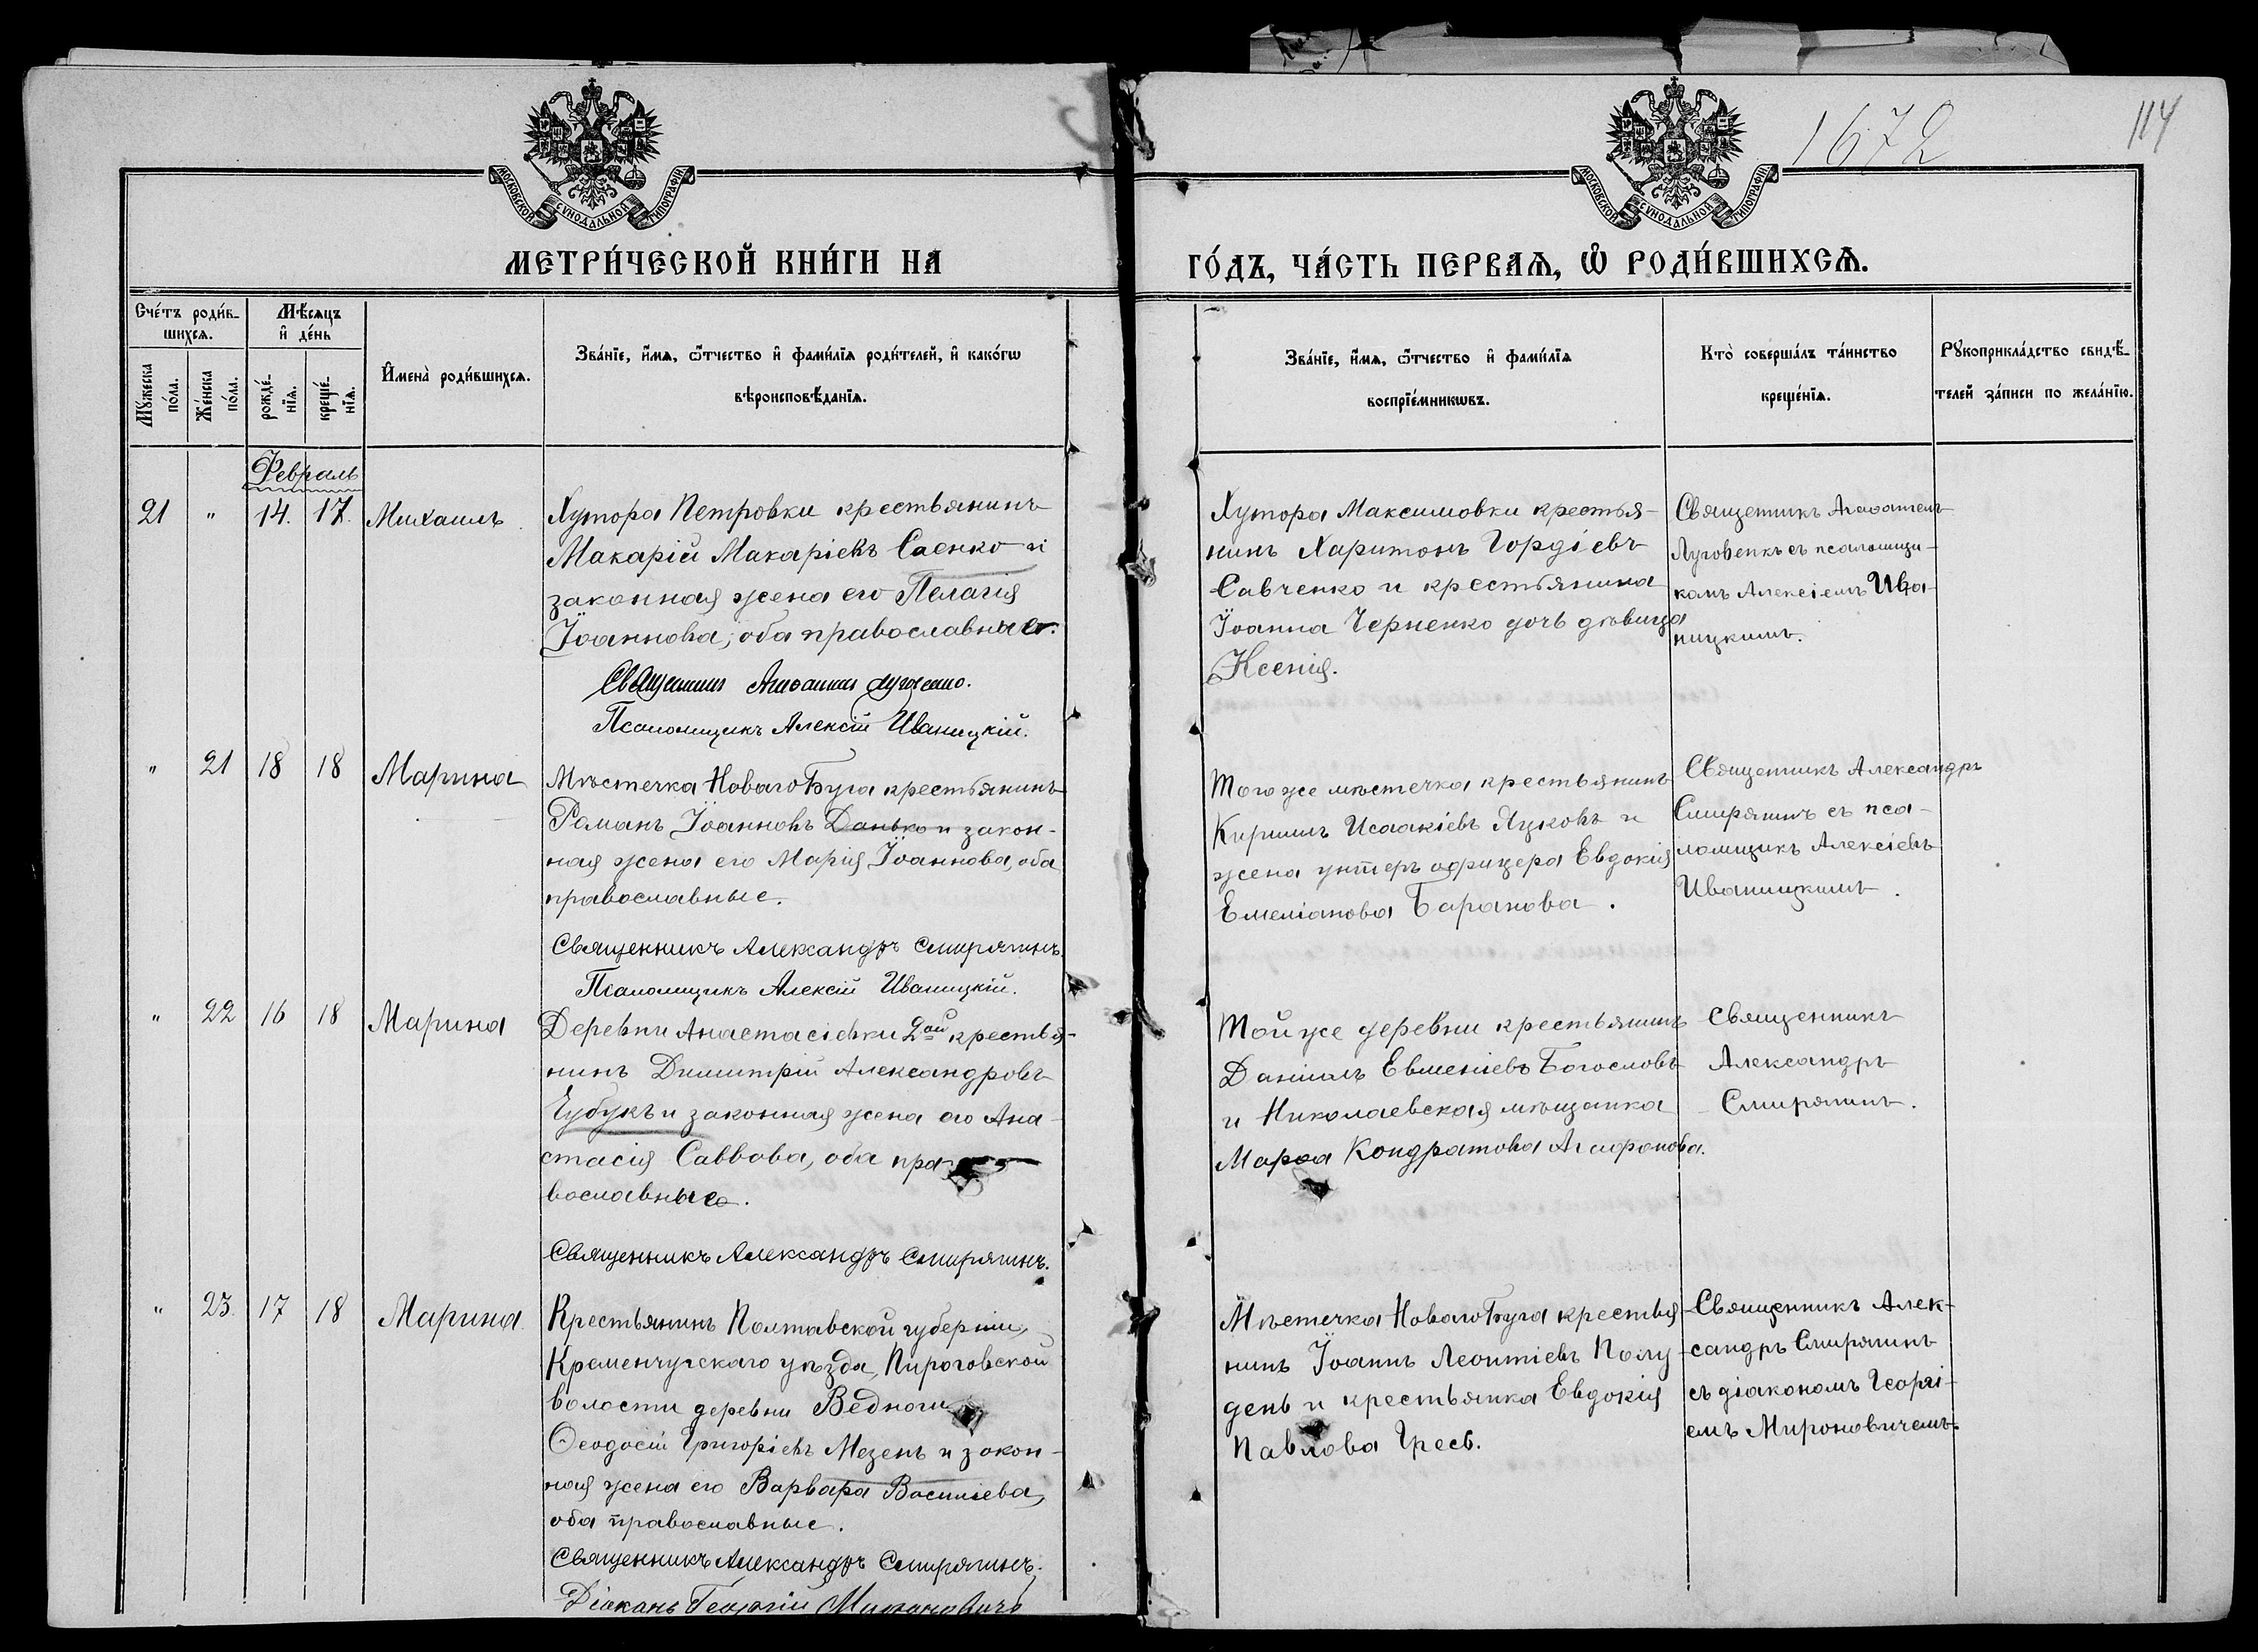 1672
114
МОСКОВСКОЙ СѴНОДАЛЬНОЙ ТИПОГРАФІИ
МОСКОВСКОЙ СѴНОДАЛЬНОЙ ТИПОГРАФІИ
МЕТРИ́ЧЕСКОЙ КНИ́ГИ НА
ГО́ДЪ, ЧА́СТЬ ПЕРВАѦ, Ѽ РОДИ́ВШИХСѦ.
Сче́тъ роди́в-
шихсѧ.
Мѣ́сѧцъ
и҆ де́нь
Мꙋ́жеска
по́ла.
Же́нска
по́ла.
рожде́-
нїѧ.
креще́-
нїѧ.
И҆мена̀ роди́вшихсѧ.
Зва́нїе, и҆́мѧ, ѻ҆́тчество и҆ фами́лїѧ роди́телей, и҆ како́гѡ
вѣроисповѣ́данїѧ.
Зва́нїе, и҆́мѧ, ѻ҆́тчество и҆ фами́лїѧ
воспрїе́мникѡвъ.
Кто̀ соверша́лъ та́инство
креще́нїѧ.
Рꙋкоприкла́дство свидѣ́-
телей за́писи по жела́нїю.
Февраль
21 " 14. 17. Михаилъ
Хутора Петровки крестьянинъ
Макарій Макаріевъ Саенко и
законная жена его Пелагія
Іоаннова, оба православные.
Священникъ
Псаломщикъ Алексій Иваницкій.
Хутора Максимовки крестья-
нинъ Харитонъ Гордіевъ
Савченко и крестьянина
Іоанна Черненко дочь дѣвица
Ксенія.
Священникъ
съ псаломщи-
комъ Алексіемъ Ива-
ницкимъ.
" 21 18 18 Марина
Мѣстечка Новаго Буга крестьянинъ
Романъ Іоанновъ Данько и закон-
ная жена его Марія Іоаннова, оба
православные.
Священникъ Александръ Смирягинъ
Псаломщикъ Алексій Иваницкій.
Того же мѣстечка крестьянинъ
Кириллъ Исаакіевъ Яцковъ и
жена унтеръ офицера Евдокія
Емеліанова Баранова.
Священникъ Александръ
Смирягинъ съ пса-
ломщикъ Алексіевъ
Иваницкимъ.
" 22 16 18 Марина
Деревни Анастасіевки 2ой крестья-
нинъ Димитрій Александровъ
Чубукъ и законная жена его Ана-
стасія Саввова, оба пра-
вославные.
Священникъ Александръ Смирягинъ.
Той же деревни крестьянинъ
Даніилъ Евменіевъ Богословъ
и Николаевская мѣщанка
Марѳа Кондратова Агафонова.
Священникъ
Александръ
Смирягинъ.
" 23. 17 18 Марина
Крестьянинъ Полтавской губерніи,
Кременчугскаго уѣзда, Пироговской
волости деревни
Ѳеодосій Григоріевъ Мезенъ и закон-
ная жена его Варвара Васильева,
оба православные.
Священникъ Александръ Смирягинъ.
Діаконъ Георгій Мироновичъ
Мѣстечка Новаго Буга крестья-
нинъ Іоаннъ Леонтіевъ Полу-
день и крестьянка Евдокія
Павлова Гресь.
Священникъ Алек-
сандръ Смирягинъ
съ діакономъ Георгі-
емъ Мироновичемъ.